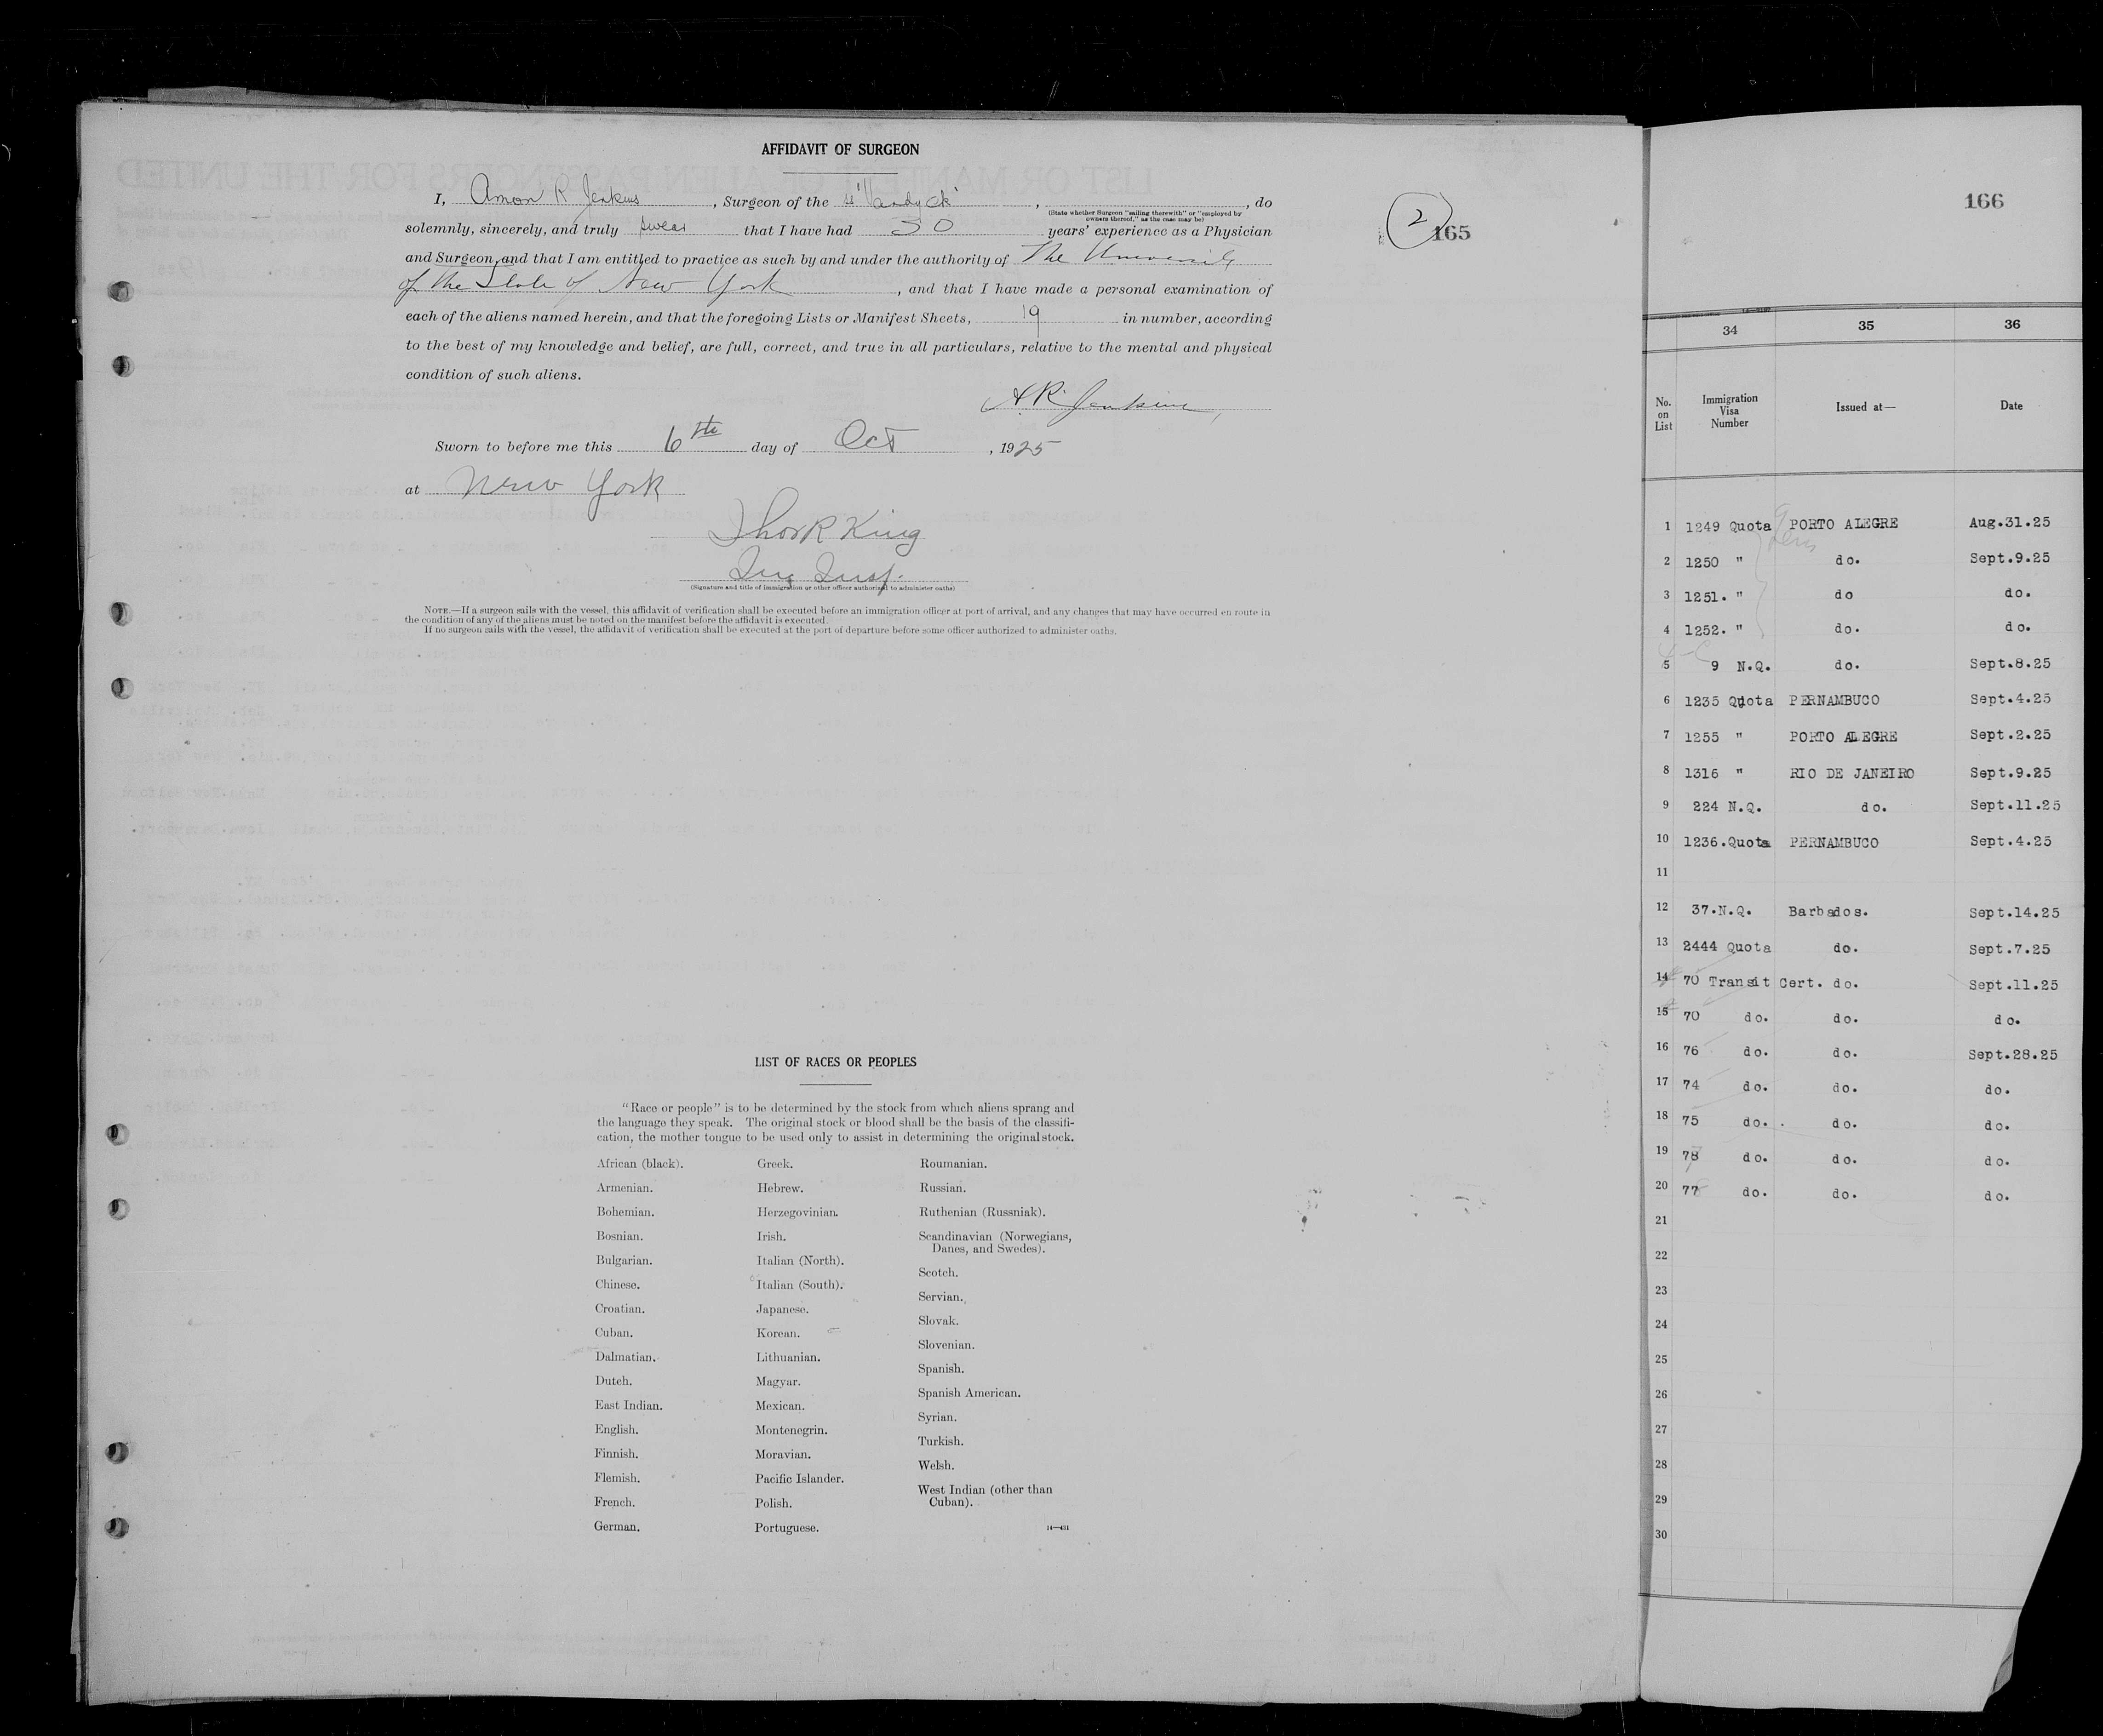 AFFIDAVIT OF SURGEON
I, Amon R Jenkins, Surgeon of the ss "Vandyck", , do
(State whether Surgeon "sailing therewith" or "employed by
owners thereof," as the case may be)
solemnly, sincerely, and truly swear that I have had 30 years' experience as a Physician
and Surgeon, and that I am entitled to practice as such by and under the authority of The University
of the State of New York, and that I have made a personal examination of
each of the aliens named herein, and that the foregoing Lists or Manifest Sheets, 19 in number, according
to the best of my knowledge and belief, are full, correct, and true in all particulars, relative to the mental and physical
condition of such aliens.
A.R. Jenkins
Sworn to before me this 6th day of Oct, 1925
at New York
Thos R King
Img Insp.
(Signature and title of immigration or other officer authorized to administer oaths)
NOTE.—If a surgeon sails with the vessel, this affidavit of verification shall be executed before an immigration officer at port of arrival, and any changes that may have occurred en route in
the condition of any of the aliens must be noted on the manifest before the affidavit is executed.
If no surgeon sails with the vessel, the affidavit of verification shall be executed at the port of departure before some officer authorized to administer oaths.
2
165
LIST OF RACES OR PEOPLES
"Race or people" is to be determined by the stock from which aliens sprang and
the language they speak. The original stock or blood shall be the basis of the classifi-
cation, the mother tongue to be used only to assist in determining the original stock.
African (black).
Armenian.
Bohemian.
Bosnian.
Bulgarian.
Chinese.
Croatian.
Cuban.
Dalmatian.
Dutch.
East Indian.
English.
Finnish.
Flemish.
French.
German.
Greek.
Hebrew.
Herzegovinian.
Irish.
Italian (North).
Italian (South).
Japanese.
Korean.
Lithuanian.
Magyar.
Mexican.
Montenegrin.
Moravian.
Pacific Islander.
Polish.
Portuguese.
Roumanian.
Russian.
Ruthenian (Russniak).
Scandinavian (Norwegians,
Danes, and Swedes).
Scotch.
Servian.
Slovak.
Slovenian.
Spanish.
Spanish American.
Syrian.
Turkish.
Welsh.
West Indian (other than
Cuban).
14—431
166
34 35 36
No. on List Immigration Visa Number Issued at— Date
1 1249 Quota PORTO ALEGRE Aug.31.25
2 1250 " do. Sept.9.25
3 1251. " do do.
4 1252. " do. do.
5 9 N.Q. do. Sept.8.25
6 1235 Quota PERNAMBUCO Sept.4.25
7 1255 " PORTO ALEGRE Sept.2.25
8 1316 " RIO DE JANEIRO Sept.9.25
9 224 N.Q. do. Sept.11.25
10 1236.Quota PERNAMBUCO Sept.4.25
11
12 37.N.Q. Barbados. Sept.14.25
13 2444 Quota do. Sept.7.25
14 70 Transit Cert. do. Sept.11.25
15 70 do. do. do.
16 76 do. do. Sept.28.25
17 74 do. do. do.
18 75 do. do. do.
19 78 do. do. do.
20 77 do. do. do.
21
22
23
24
25
26
27
28
29
30